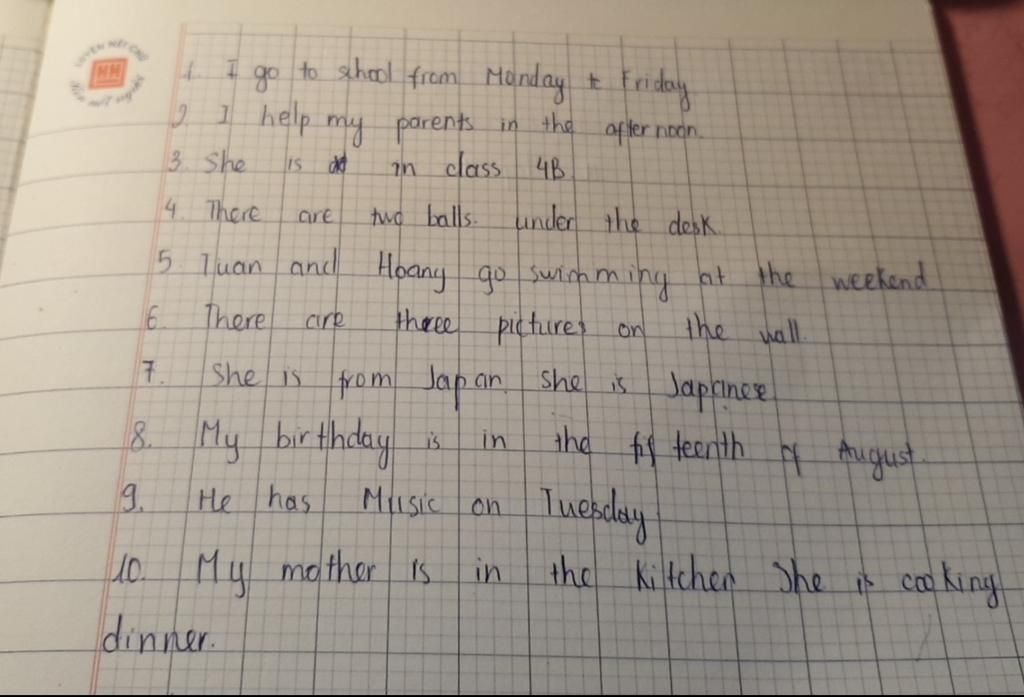 LUYỆN NÉT CHỮ
HH
Rèn nết người
1. I go to school from Monday to Friday
2. I help my parents in the afternoon.
3. She is in class 4B
4. There are two balls. under the desk.
5. Tuan and Hoang go swimming at the weekend
6. There are three pictures on the wall.
7. She is from Japan. She is Japanese
8. My birthday is in the fifteenth of August.
9. He has Music on Tuesday
10. My mother is in the kitchen She is cooking
dinner.